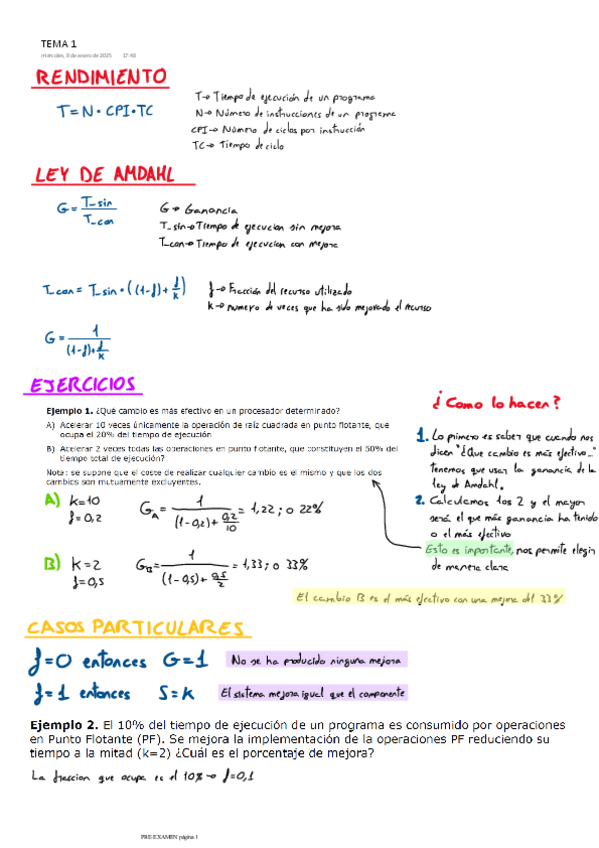 TEMA 1
miércoles, 8 de enero de 2025 17:48
RENDIMIENTO
T = N · CPI · TC
T → Tiempo de ejecución de un programa
N → Número de instrucciones de un programa
CPI → Número de ciclos por instrucción
TC → Tiempo de ciclo
LEY DE AMDAHL
G = T_sin / T_con
G → Ganancia
T_sin → Tiempo de ejecucion sin mejora
T_con → Tiempo de ejecucion con mejora
T_con = T_sin · ((1-f) + f/k)
f → Fracción del recurso utilizado
k → numero de veces que ha sido mejorado el recurso
G = 1 / ((1-f) + f/k)
EJERCICIOS
Ejemplo 1. ¿Qué cambio es más efectivo en un procesador determinado?
A) Acelerar 10 veces únicamente la operación de raíz cuadrada en punto flotante, que
ocupa el 20% del tiempo de ejecución
B) Acelerar 2 veces todas las operaciones en punto flotante, que constituyen el 50% del
tiempo total de ejecución?
Nota: se supone que el coste de realizar cualquier cambio es el mismo y que los dos
cambios son mutuamente excluyentes.
A) k=10
f=0,2
G_A = 1 / ((1-0,2) + 0,2/10) = 1,22 ; o 22%
B) k=2
f=0,5
G_B = 1 / ((1-0,5) + 0,5/2) = 1,33 ; o 33%
El cambio B es el más efectivo con una mejora del 33%
¿Como lo hacen?
1. Lo primero es saber que cuando nos
dicen "¿Que cambio es más efectivo..."
tenemos que usar la ganancia de la
ley de Amdahl.
2. Calculamos los 2 y el mayor
será el que más ganancia ha tenido
o el más efectivo
Esto es importante, nos permite elegir
de manera clara
CASOS PARTICULARES
f=0 entonces G=1 No se ha producido ninguna mejora
f=1 entonces S=k El sistema mejora igual que el componente
Ejemplo 2. El 10% del tiempo de ejecución de un programa es consumido por operaciones
en Punto Flotante (PF). Se mejora la implementación de la operaciones PF reduciendo su
tiempo a la mitad (k=2) ¿Cuál es el porcentaje de mejora?
La fraccion que ocupa es el 10% → f=0,1
PRE-EXAMEN página 1